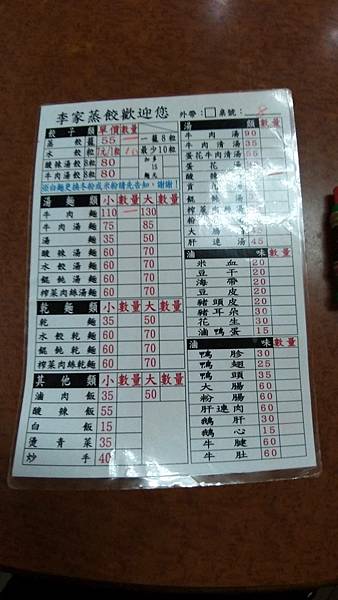 李家蒸餃歡迎您 外帶：□ 桌號：
餃子類 單價 數量
蒸餃籠 55 一籠8粒
水餃 最少10粒
酸辣湯餃 80
牛肉湯餃 80
※白麵更換冬粉或米粉請先告知，謝謝！
湯麵類 小 數量 大 數量
牛肉麵 110 130
牛肉湯麵 75 85
湯麵 35 50
酸辣湯麵 60 70
水餃湯麵 60 70
餛飩湯麵 60 70
榨菜肉絲湯麵 60 70
乾麵類 小 數量 大 數量
乾麵 35 50
水餃乾麵 60 70
餛飩乾麵 60 70
榨菜肉絲乾麵 60 70
其他類 小 數量 大 數量
滷肉飯 35 50
酸辣飯 55
白飯 15
燙青菜 35
炒手 40
湯類 數量
牛肉湯 90
牛肉清湯 35
蛋花牛肉清湯 55
肝連湯 45
滷味 數量
米血 20
豆干 20
海帶 20
豆皮 20
豬頭皮 20
豬耳朵 30
花生 30
滷鴨蛋 15
滷味 數量
鴨胗 30
鴨翅 25
鴨頭 35
大腸 60
粉腸 60
肝連肉 60
鵝肝 30
鵝心 15
牛腱 60
牛肚 60